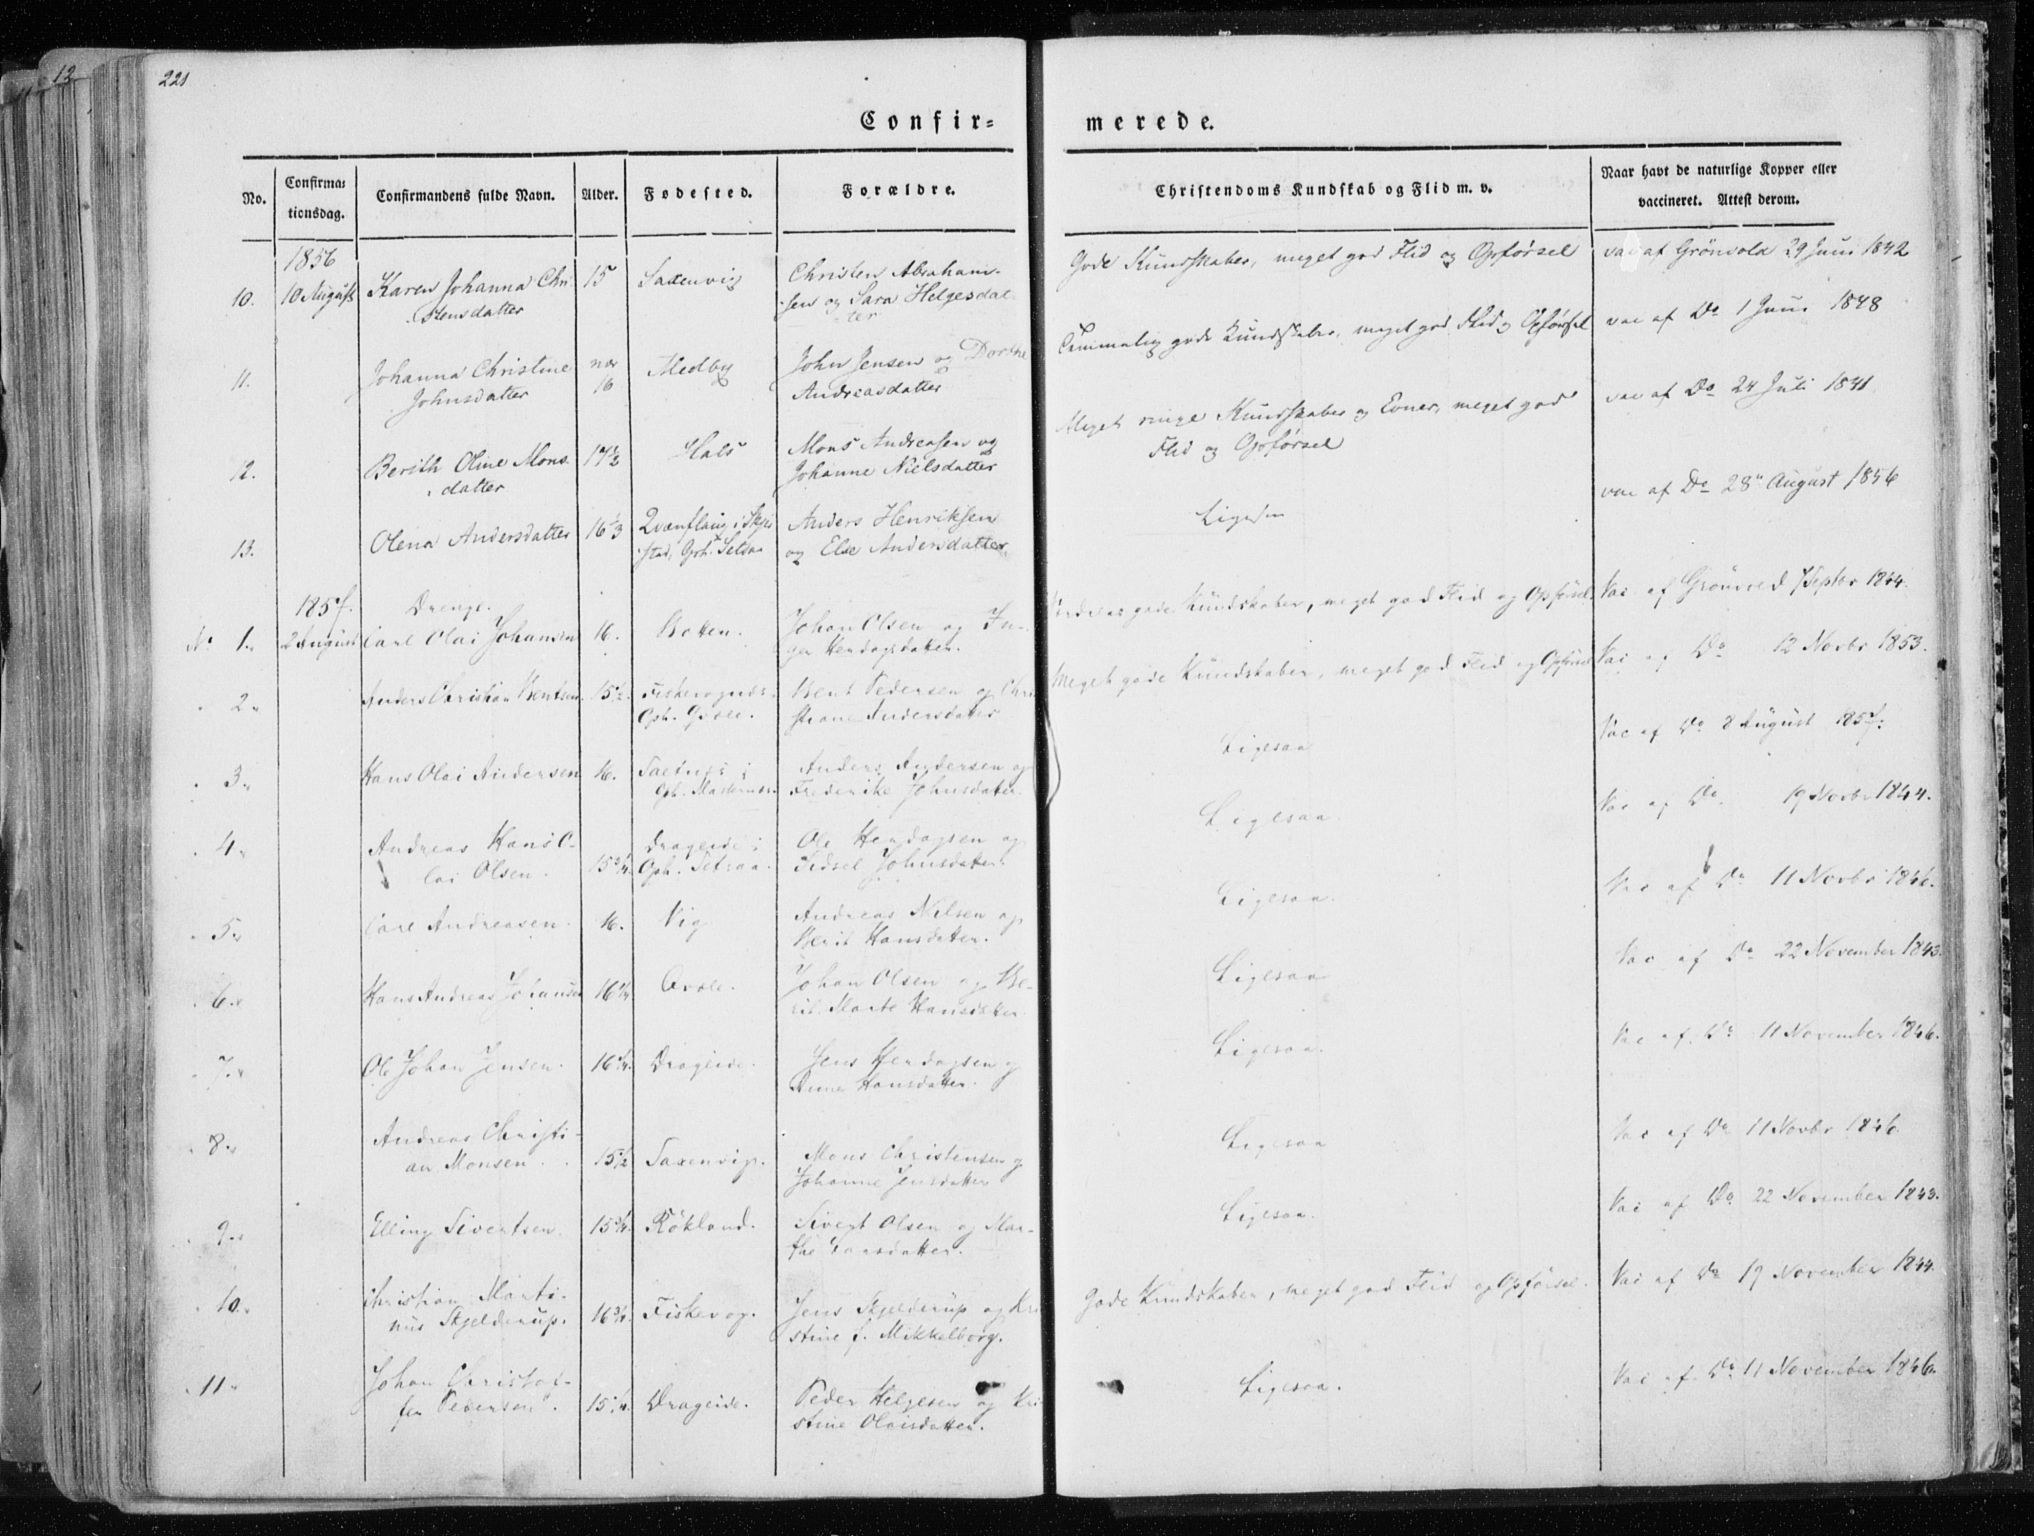 12
221
Confir=
merede.
No.
Confirma=
tionsdag.
Confirmandens fulde Navn.
Alder.
Fødested.
Forældre.
Christendoms Kundskab og Flid m. v.
Naar havt de naturlige Kopper eller
vaccineret. Attest derom.
1856
10. 10 August Karen Johanna Chri-
stensdatter
15 Saxenvig
Christen Abraham-
sen og Sara Helgesdat-
ter
Gode Kundskaber, meget god Flid og Opførsel
vac af Grönvold 29 Juni 1842
11.
Johanna Christine
Johnsdatter
nær
16
Medby
John Jensen og Dorthe
Andreasdatter
Temmelig gode Kundskaber, meget god Flid og Opførsel
vac af Do 1 Juni 1848
12.
Berith Oline Mons-
datter
17½
Hals
Mons Andreasen og
Johanne Nielsdatter
Meget ringe Kundskaber og Evner, meget god
Flid og Opførsel
vac af Do 24 Juli 1841
13.
Olena Andersdatter
16⅓
i Skjer
stad, Oph. Setsaa
Anders Henriksen
og Else Andersdatter
Ligesaa
vac af Do 28 August 1856
1857.
Drenge.
No 1. 2 August Carl Olai Johansen 16. Botten.
Johan Olsen og In-
ger Hendagsdatter.
gode Kundskaber, meget god Flid og Opførsel
Vac af Grönvold 7 Septbr 1844.
2.
Anders Christian Bentsen 15½.
Fiskevog
Oph.
Bent Pedersen og Chri
stiane Andersdatter
Meget gode Kundskaber, meget god Flid og Opførsel
Vac af Do 12 Novbr 1853.
3.
Hans Olai Andersen 16.
i
Oph.
Anders Andersen og
Frederike Johnsdatter
Ligesaa
Vac af Do 8 August 1857.
4.
Andreas Hans O-
lai Olsen.
15¾.
Drageide i
Oph. Setsaa.
Ole Hendagsen og
Sidsel Johnsdatter.
Ligesaa.
Vac af Do 19 Novbr 1844.
5.
Carl Andreasen. 16. Vig
Andreas Nilsen og
Berit Hansdatter.
Ligesaa.
Vac af Do 11 Novbr 1846.
6.
Hans Andreas Johansen 16¼.
Johan Olsen og Be-
rit Marte Hansdatter.
Ligesaa
Vac af Do 22 November 1843.
7.
Ole Johan Jensen. 16¼. Drageide.
Jens Hendagsen og
Anne Hansdatter.
Ligesaa.
Vac af Do 11 November 1846.
8.
Andreas Christi-
an Monsen.
15½ Saxenvig.
Mons Christensen og
Johanne Jensdatter
Ligesaa
Vac af Do 11 Novbr 1846
9.
Elling Sivertsen. 15¾. Rökland.
Sivert Olsen og Mar-
the datter.
Ligesaa.
Vac af Do 22 November 1843.
10.
Christian Marti-
nus Skjelderup.
16¾. Fiskevog.
Jens Skjelderup og Kri
stine f. Mikkelborg.
Gode Kundskaber, meget god Flid og Opførsel.
Vac af Do 19 November 1844.
11.
Johan Christof-
fer Pedersen.
15¼. Drageide.
Peder Helgesen og Kri
stine Olaisdatter.
Ligesaa.
Vac af Do 11 November 1846.